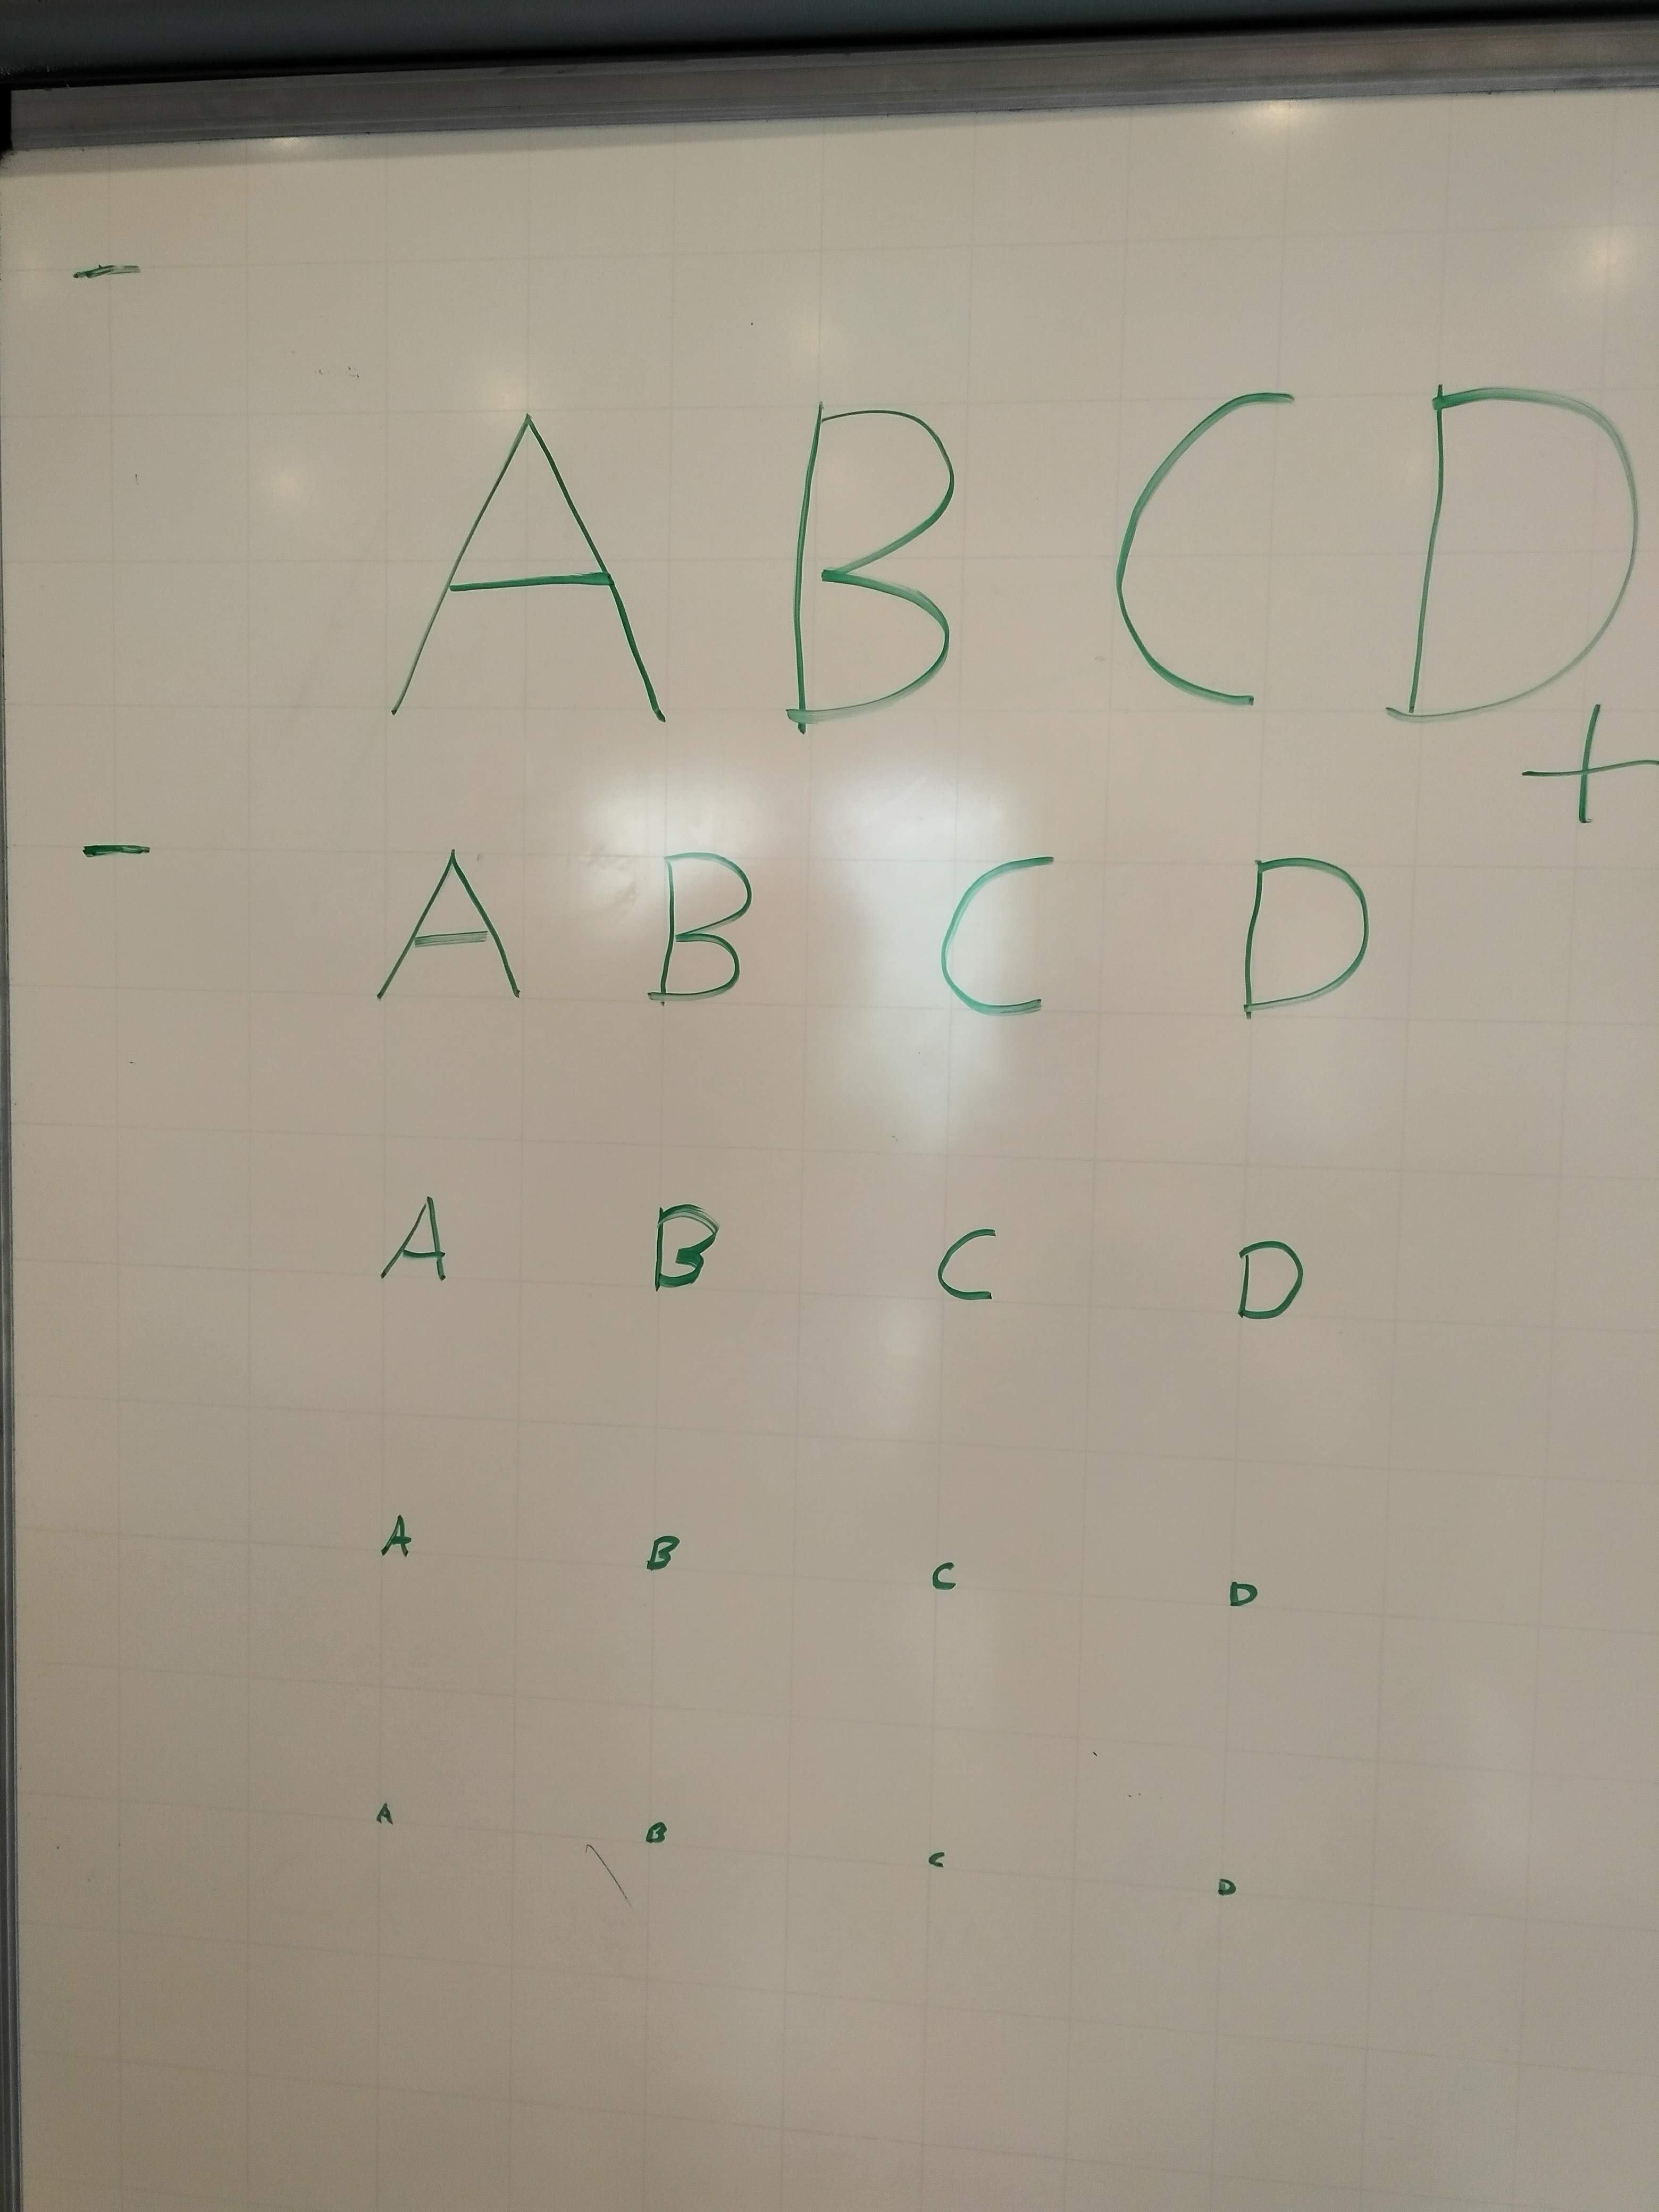 -
A B C D
+
- A B C D
A B C D
A B C D
A B C D